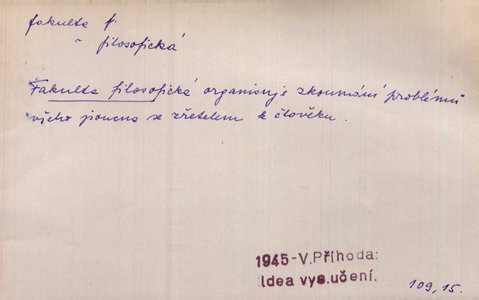 fakulta f.
~ filosofická
Fakulta filosofická organisuje zkoumání problémů
všeho jsoucna se zřetelem k člověku.
1945-V.Příhoda:
Idea vys.učení.
109,15.